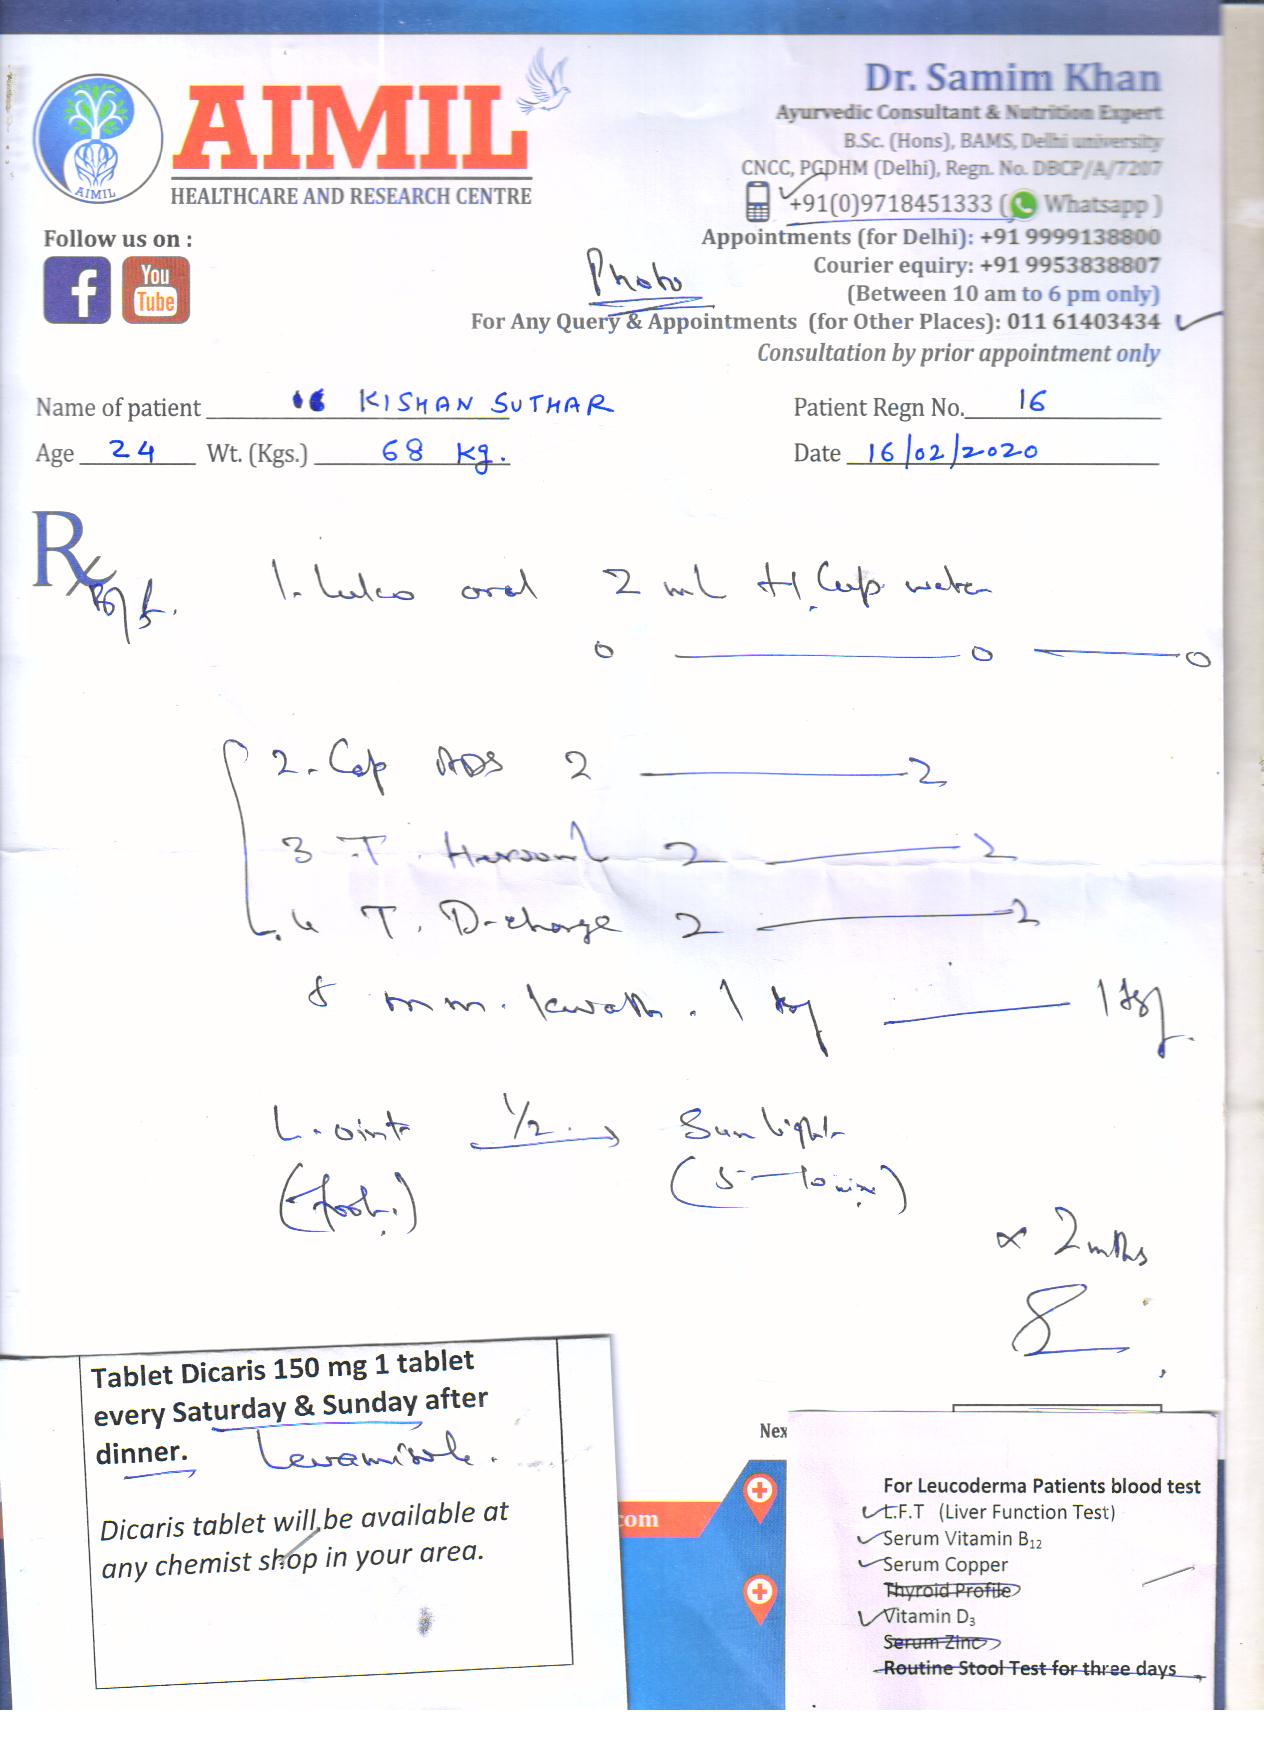 AIMIL
HEALTHCARE AND RESEARCH CENTRE
AIMIL
Follow us on :
f
You
Tube
Dr. Samim Khan
Ayurvedic Consultant & Nutrition Expert
B.Sc. (Hons), BAMS, Delhi university
CNCC, PGDHM (Delhi), Regn. No. DBCP/A/7207
+91(0)9718451333 (Whatsapp )
Appointments (for Delhi): +91 9999138800
Courier equiry: +91 9953838807
(Between 10 am to 6 pm only)
Photo
For Any Query & Appointments (for Other Places): 011 61403434
Consultation by prior appointment only
Name of patient 16 KISHAN SUTHAR Patient Regn No. 16
Age 24 Wt. (Kgs.) 68 kg. Date 16/02/2020
Rx
1. Luko oral 2 ml + 1/2 Cup water
0 — 0 — 0
2. Cap ADS 2 — 2
3 T. 2 — 2
4 T. D-charge 2 — 2
5 m.m. kwath. 1 — 1
L-oint 1/2 → Sun light
(5-10 min)
x 2 mths
Tablet Dicaris 150 mg 1 tablet
every Saturday & Sunday after
dinner. Levamisole.
Dicaris tablet will be available at
any chemist shop in your area.
Nex
com
For Leucoderma Patients blood test
L.F.T (Liver Function Test)
Serum Vitamin B12
Serum Copper
Thyroid Profile
Vitamin D3
Serum Zinc
Routine Stool Test for three days